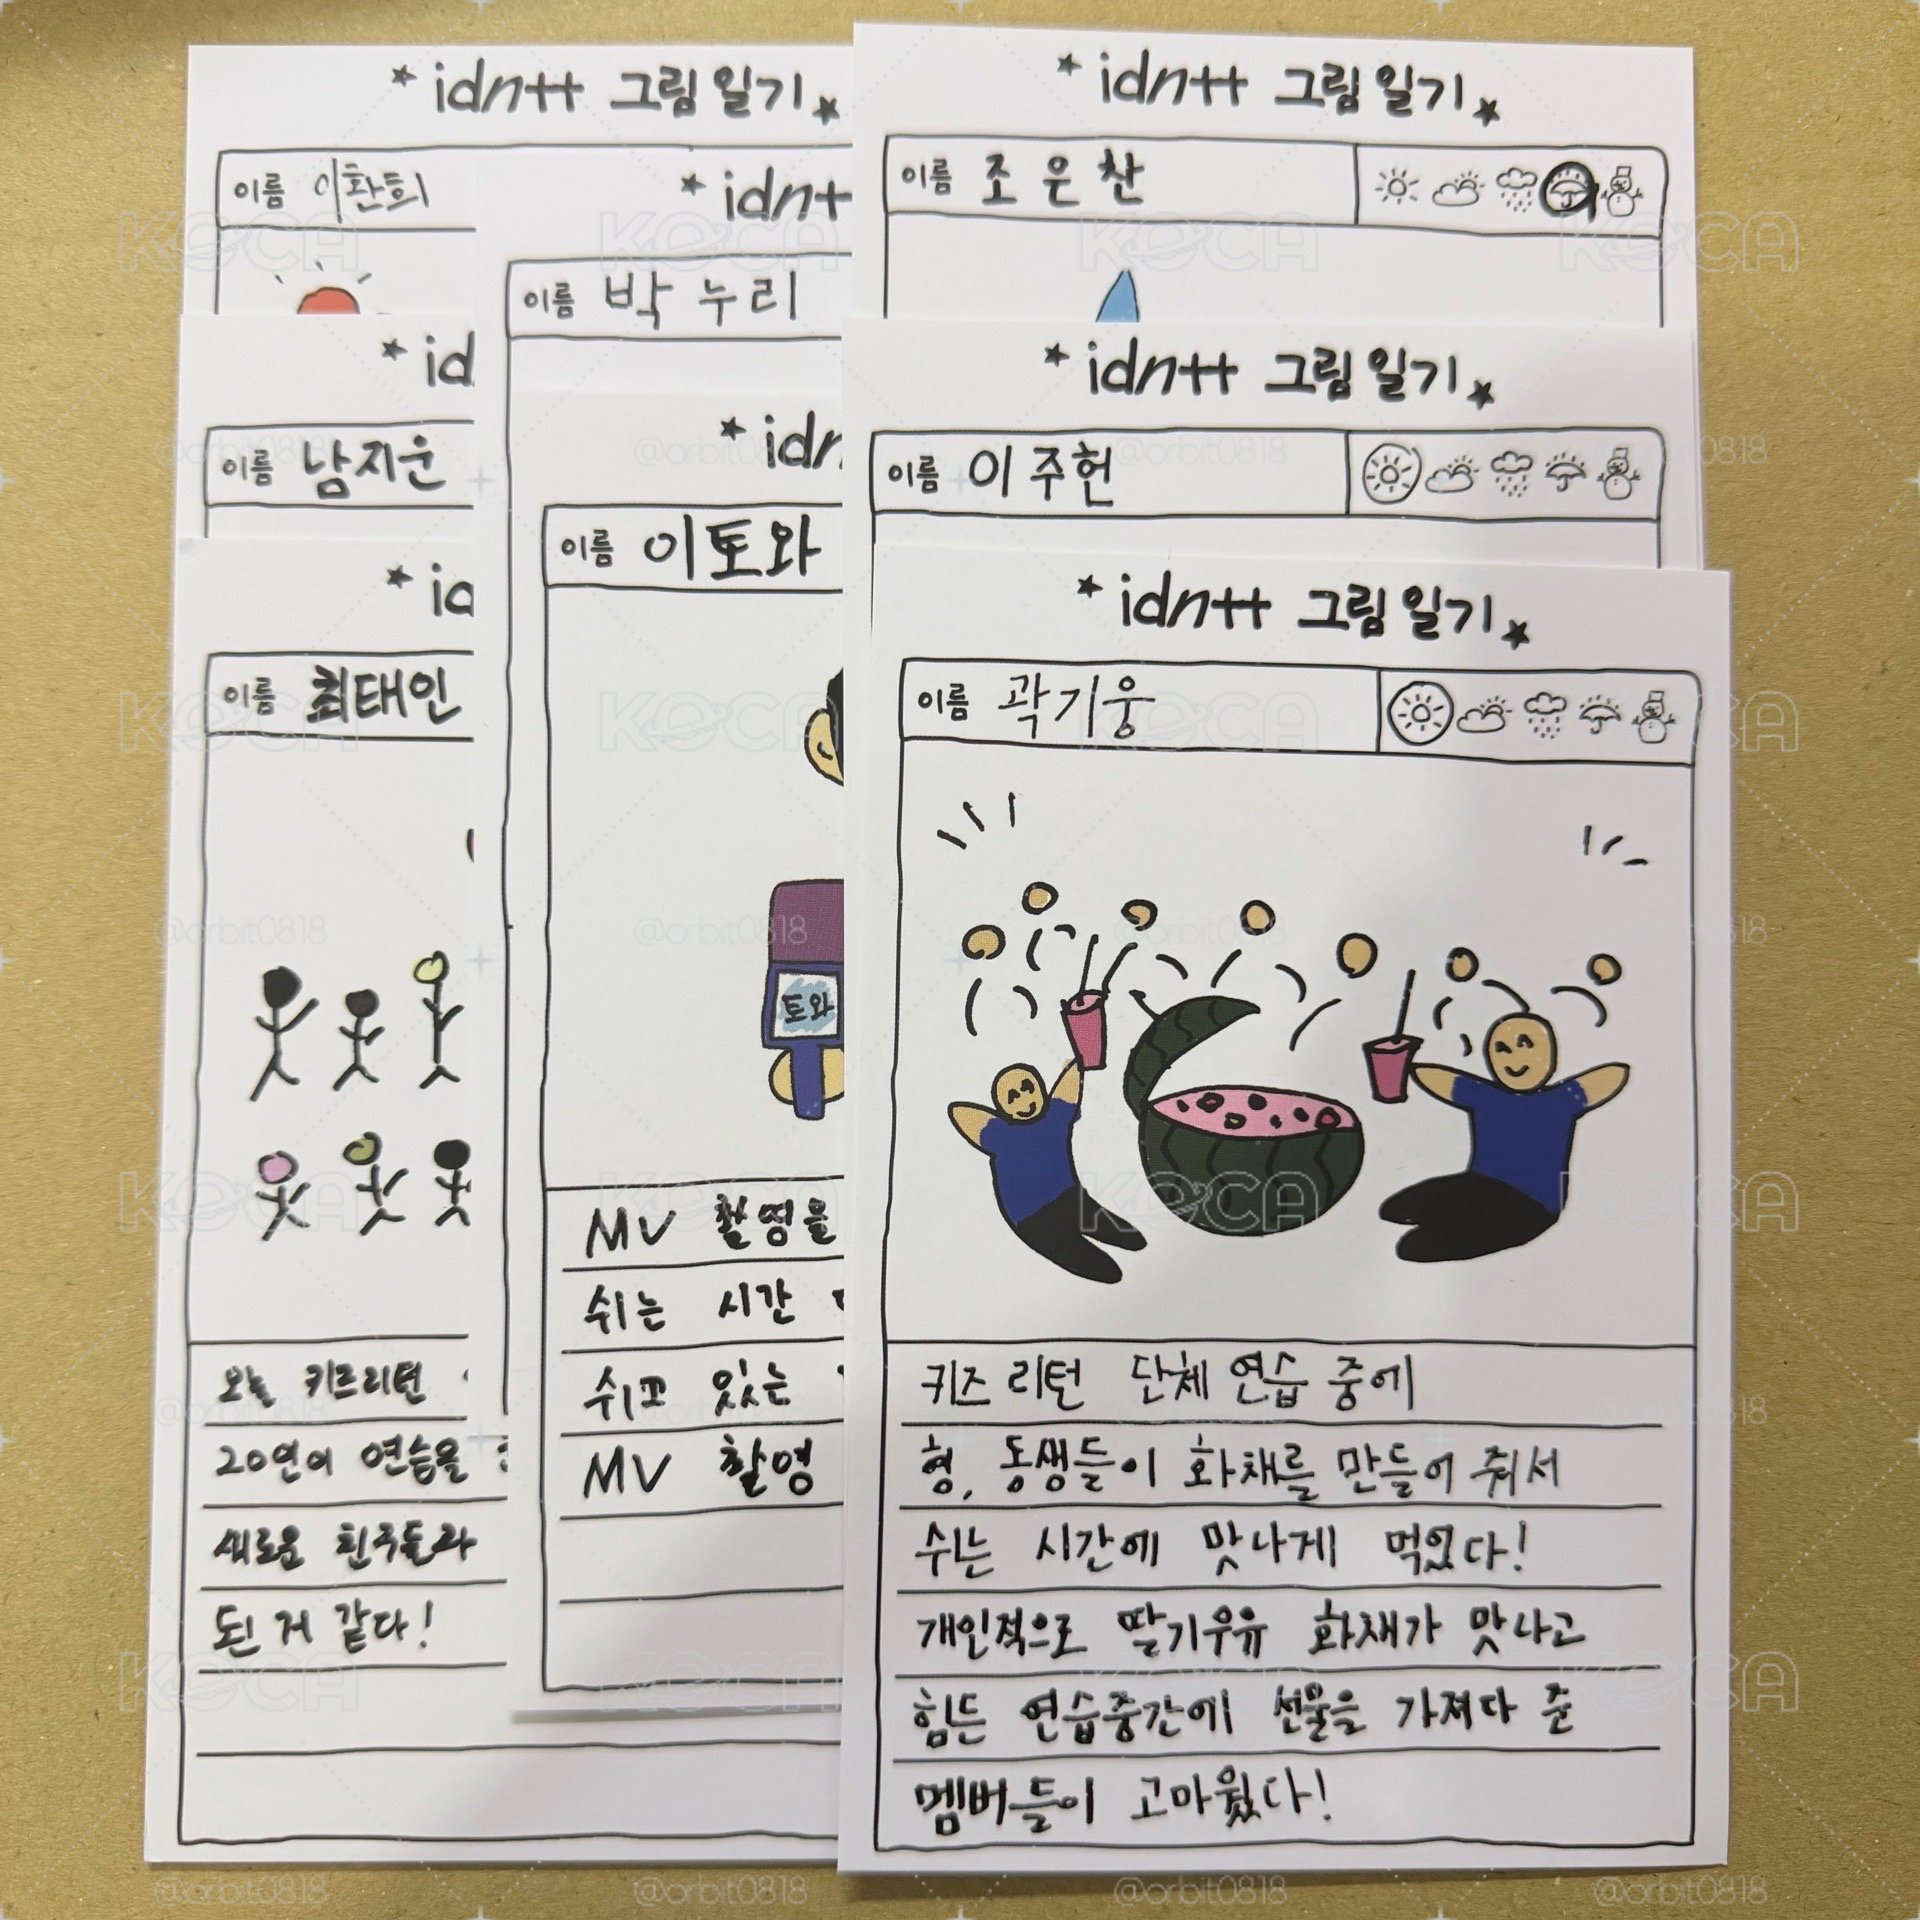 *idntt 그림일기★
이름 이환희
*idntt
이름 박누리
*id
이름 남지운
*idn
이름 이토와
토와
MV 촬영을
쉬는 시간
쉬고 있는
MV 촬영
*id
이름 최태인
오늘 키즈리턴
20연이 연습을
새로운 친구들과
된 거 같다!
*idntt 그림일기★
이름 조은찬
*idntt 그림일기★
이름 이주헌
*idntt 그림일기★
이름 곽기웅
키즈 리턴 단체 연습 중에
형, 동생들이 화채를 만들어 줘서
쉬는 시간에 맛나게 먹었다!
개인적으로 딸기우유 화채가 맛나고
힘든 연습중간에 선물을 가져다 준
멤버들이 고마웠다!
KOCA
@orbit0818